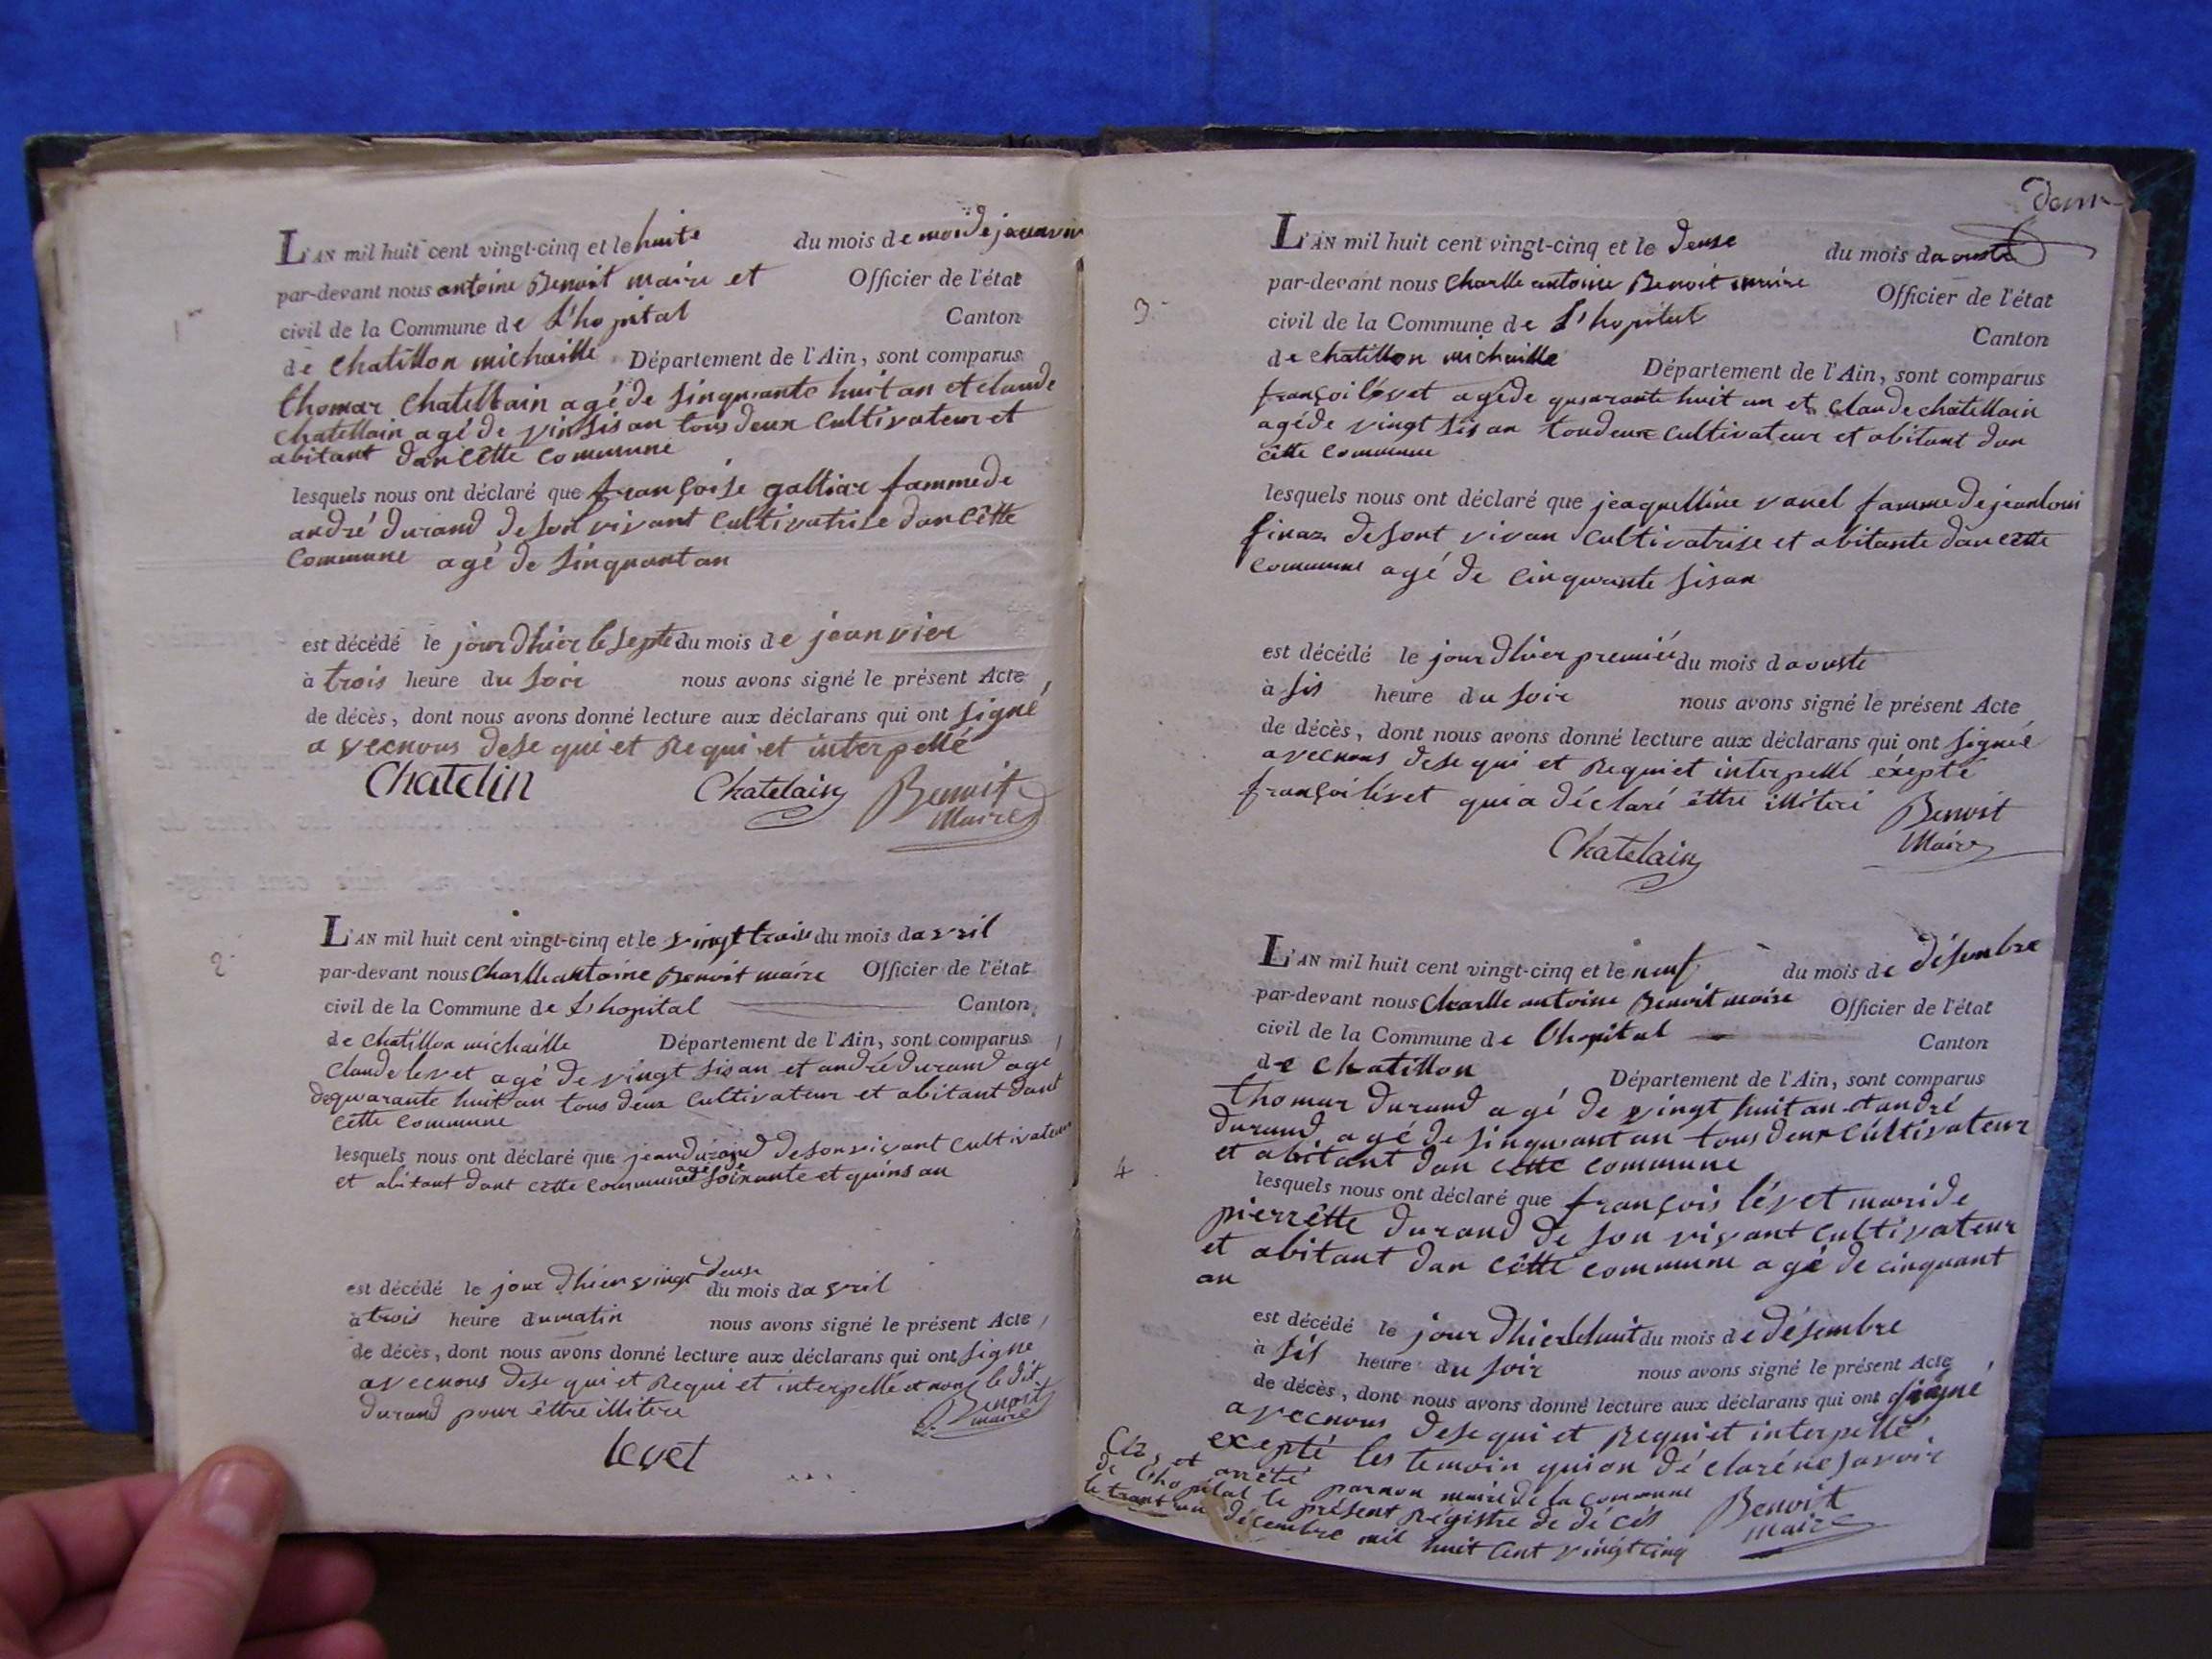 1
L'AN mil huit cent vingt-cinq et le huite du mois de moi de jeanvier
par-devant nous antoine Benoit maire et Officier de l'état
civil de la Commune de L'hopital Canton
de chatillon michaille Département de l'Ain, sont comparus
thomas chatellain agé de sinquante huit an et claude
chatellain agé de vin sis an tous deux cultivateur et
abitant dan cette commune
lesquels nous ont déclaré que françoise galliar famme de
andré durand de son vivant cultivatrise dan cette
commune agé de sinquant an
est décédé le jour d'hier le septe du mois de jeanvier
à trois heure du soir nous avons signé le présent Acte
de décès, dont nous avons donné lecture aux déclarans qui ont signé
avecnous dese qui et Requi et interpellé
Chatelin Chatelain Benoit
Maire
2
L'AN mil huit cent vingt-cinq et le vingt trois du mois davril
par-devant nous Charlle antoine Benoit maire Officier de l'état
civil de la Commune de L'hopital Canton
de chatillon michaille Département de l'Ain, sont comparus
Claude levet agé de vingt sis an et andré durand agé
de quarante huit an tous deux cultivateur et abitant dant
cette commune
lesquels nous ont déclaré que jean durand de son vivant cultivateur
et abitant dant cette commune agé de soixante et quins an
est décédé le jour d'hier vingt deuse du mois davril
à trois heure du matin nous avons signé le présent Acte
de décès, dont nous avons donné lecture aux déclarans qui ont signe
avecnous dese qui et Requi et interpellé et non le dit
durand pour êttre illitere Benoit
maire
levet
deux
3
L'AN mil huit cent vingt-cinq et le deuse du mois daouste
par-devant nous Charlle antoine Benoit maire Officier de l'état
civil de la Commune de L'hopital Canton
de chatillon michaille Département de l'Ain, sont comparus
françoi lévet agé de quarante huit an et claude chatellain
agé de vingt sis an tou deux cultivateur et abitant dan
cette commune
lesquels nous ont déclaré que jeaquelline vanel famme de jeanloui
finaz de sont vivan cultivatrise et abitante dan cette
commune agé de cinquante sis an
est décédé le jour d'hier premié du mois daouste
à sis heure du soir nous avons signé le présent Acte
de décès, dont nous avons donné lecture aux déclarans qui ont signé
avecnous dese qui et Requi et interpellé éxepté
françoi lévet qui a déclaré êttre illiteré Benoit
Maire
Chatelain
4
L'AN mil huit cent vingt-cinq et le neuf du mois de désembre
par-devant nous Charlle antoine Benoit maire Officier de l'état
civil de la Commune de Lhopital Canton
de Chatillon Département de l'Ain, sont comparus
thomas durand agé de vingt huit an et andré
durand agé de sinquant an tous deux cultivateur
et abitant dan cette commune
lesquels nous ont déclaré que françois lévet mari de
pierrette durand de son vivant cultivateur
et abitant dan cêtte commune agé de cinquant
an
est décédé le jour d'hier le huit du mois de désembre
à sis heure du soir nous avons signé le présent Acte
de décès, dont nous avons donné lecture aux déclarans qui ont signé
avecnous dese qui et Requi et interpellé
excepté les temoin qui on déclaré ne savoir
Clos et arrêté par nou maire de la commune
de Lhopital le présent Régistre de décés
le trant un décembre mil huit cent vingt cinq
Benoit
maire